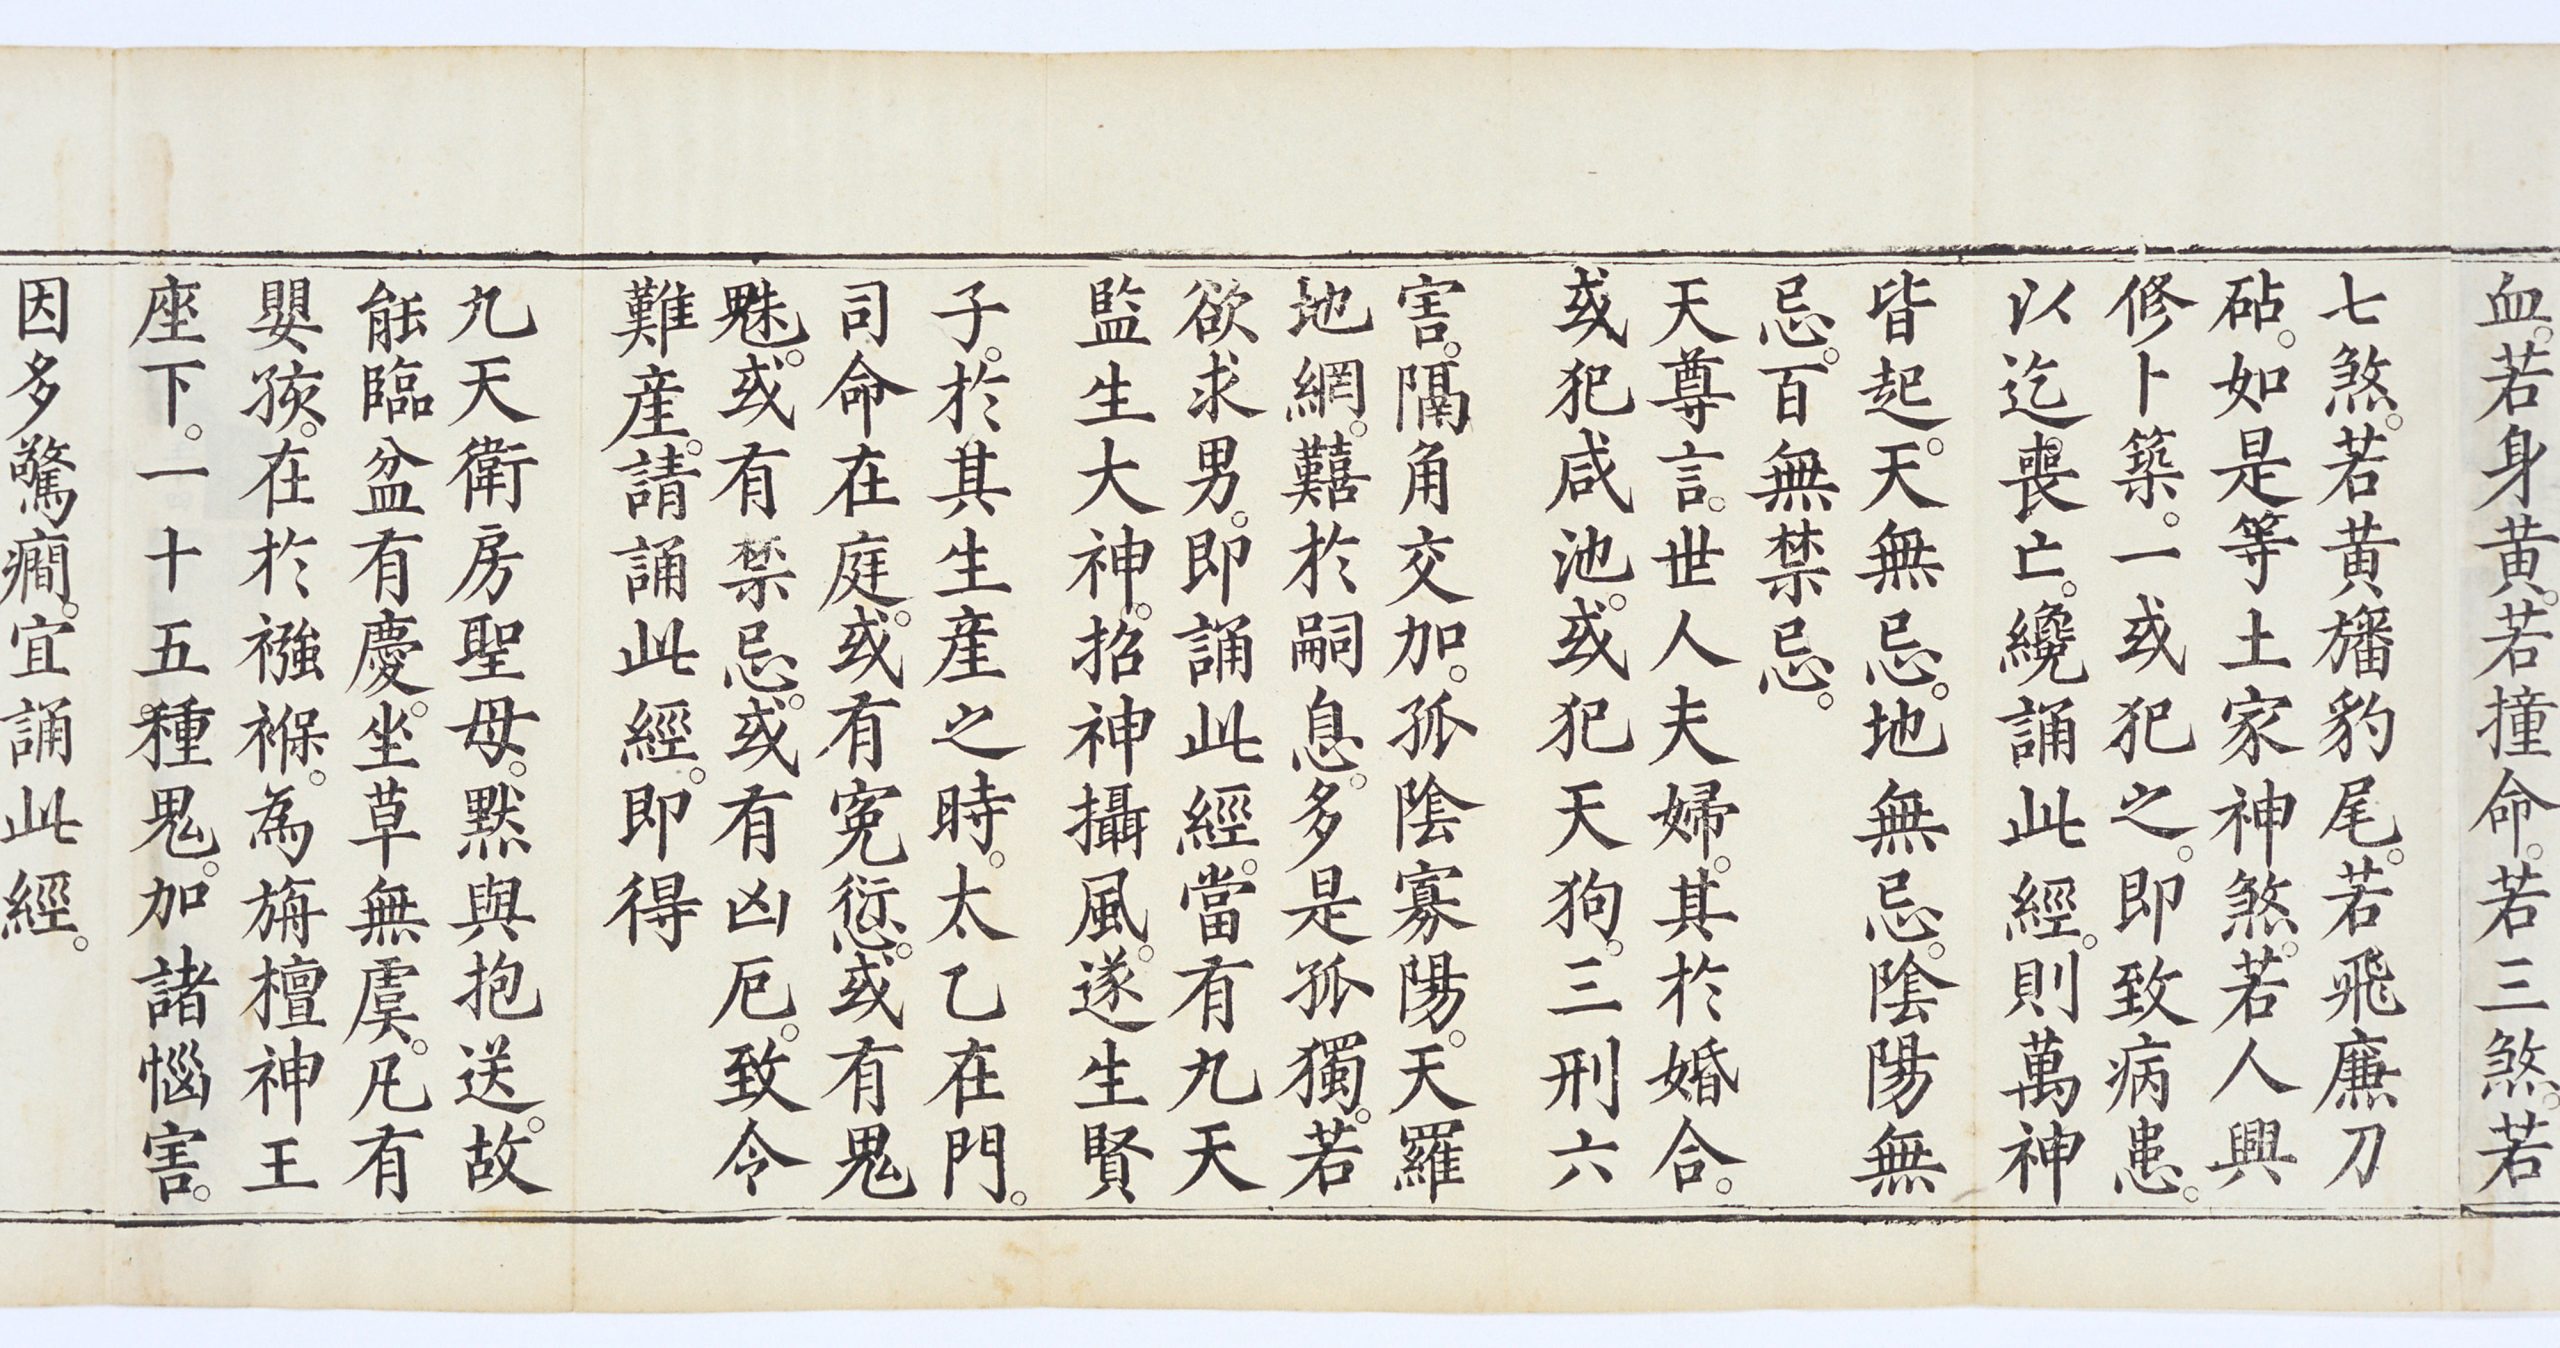 血。若身黄。若撞命。若三煞。若
七煞。若黄旛豹尾。若飛廉刀
砧。如是等土家神煞。若人興
修卜築。一或犯之。即致病患。
以迄喪亡。纔誦此經。則萬神
皆起。天無忌。地無忌。陰陽無
忌。百無禁忌。
天尊言。世人夫婦。其於婚合。
或犯咸池。或犯天狗。三刑六
害。隔角交加。孤陰寡陽。天羅
地網。囏於嗣息。多是孤獨。若
欲求男。即誦此經。當有九天
監生大神。招神攝風。遂生賢
子。於其生産之時。太乙在門。
司命在庭。或有寃愆。或有鬼
魅。或有禁忌。或有凶厄。致令
難産。請誦此經。即得
九天衛房聖母。默與抱送。故
能臨盆有慶。坐草無虞。凡有
嬰孩。在於襁褓。為旃檀神王
座下。一十五種鬼。加諸惱害。
因多驚癇。宜誦此經。